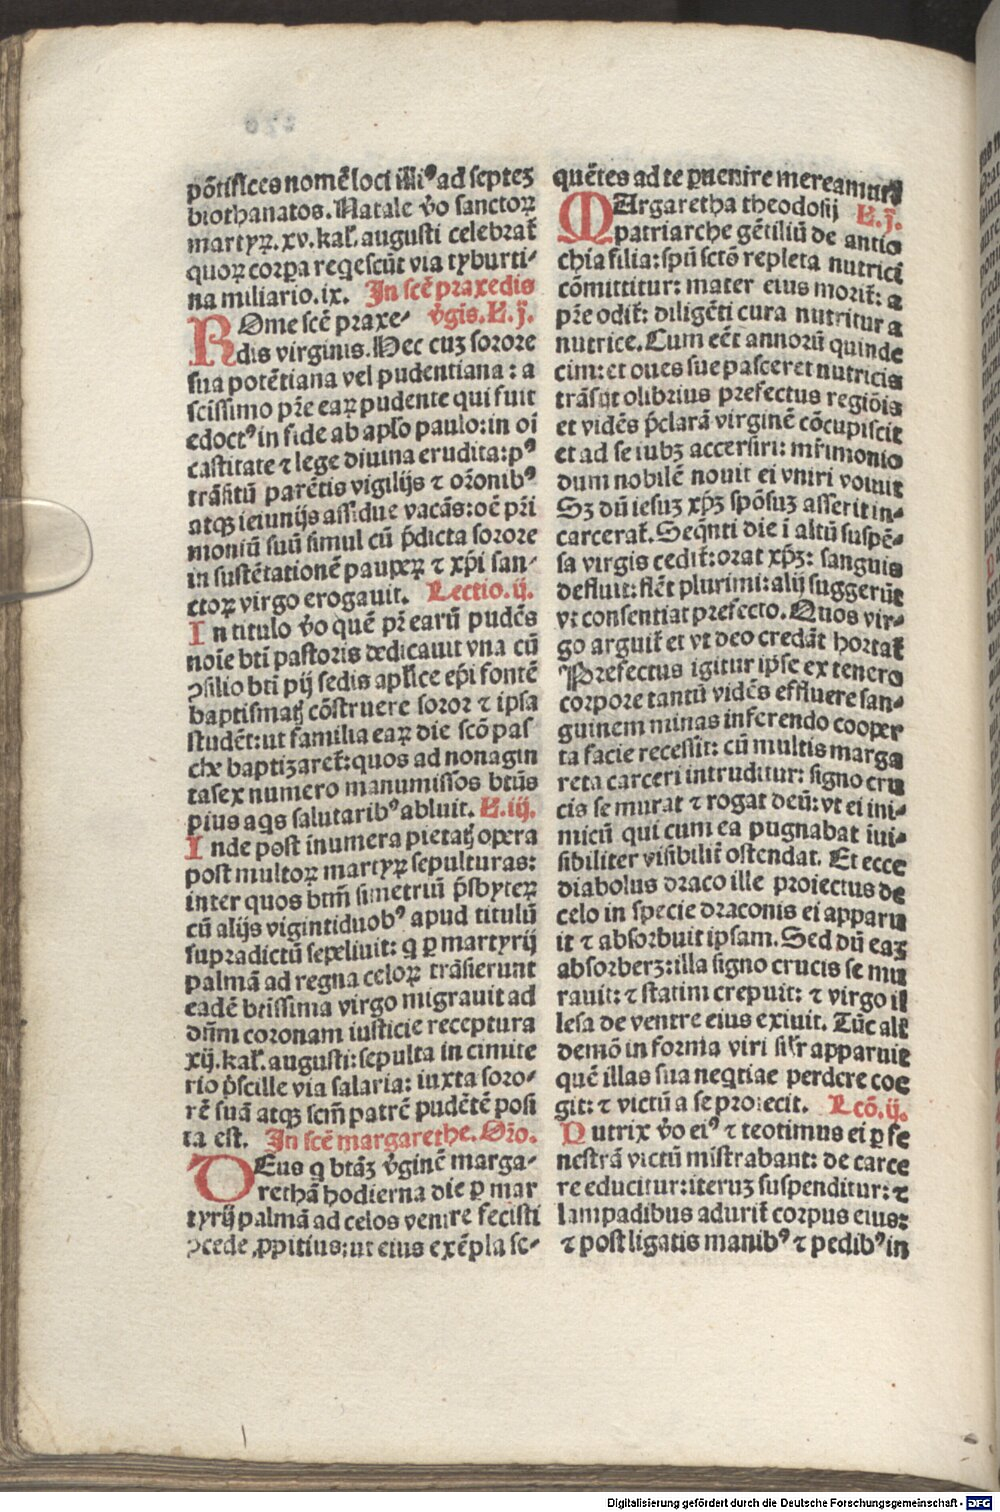 põtifices nomẽ loci illiꝰ ad septeꝫ
biothanatos. Natale v̾o sanctoꝝ
martyꝝ. xv. kal̾. augusti celebrat̾
quoꝝ corpora reqescũt via tyburti-
na miliario. ix. In scẽ praxedis
Rome scẽ praxe- v̾gis. L. j.
dis virginis. Hec cuꝫ sorore
sua potẽtiana vel pudentiana : a
scissimo pr̃e eaꝝ pudente qui fuit
edoctꝰ in fide ab apl̾o paulo: in oĩ
castitate ⁊ lege diuina erudita: pꝰ
trãsitũ parẽtis vigilijs ⁊ or̃onibꝰ
atqꝫ ieiunijs assidue vacãs: oẽ pr̃i
moniũ suũ simul cũ p̃dicta sorore
in sustẽtationẽ paupeꝝ ⁊ xp̃i san-
ctoꝝ virgo erogauit. Lectio. ij.
In titulo v̾o quẽ pr̃ earũ pudẽs
noĩe bt̃i pastoris dedicauit vna cũ
ↄsilio bt̃i pij sedis apl̾ice ep̃i fontẽ
baptismatꝭ cõstruere soror ⁊ ipsa
studẽt: ut familia eaꝝ die scõ pas
che baptizaret̾: quos ad nonagin
tasex numero manumissos bt̃us
pius aqs salutaribꝰ abluit. L. iij.
Inde post innumera pietatꝭ opera
post multoꝝ martyꝝ sepulturas:
inter quos btm̃ simetriũ p̃sbyteꝝ
cũ alijs vigintiduobꝰ apud titulũ
supradictũ sepeliuit: q ꝑ martyrij
palmã ad regna celoꝝ trãsierunt
eadẽ btissima virgo migrauit ad
dñm coronam iusticie receptura
xij. kal̾. augusti: sepulta in cimite
rio p̃scille via salaria: iuxta soro-
rẽ suã atqꝫ scm̃ patrẽ pudẽtẽ posi
ta est. In scẽ margarethe. Or̃o.
DEus q btãꝫ v̾ginẽ marga-
rethã hodierna die ꝑ mar
tyrij palmã ad celos venire fecisti
ↄcede ꝓpitius: ut eius exẽpla se-
quẽtes ad te ꝑuenire mereamur
MArgaretha theodosij L. j.
patriarche gẽtiliũ de antio
chia filia: spũ sctõ repleta nutrici
cõmittitur: mater eius morit̾: a
pr̃e odit̾: diligẽti cura nutritur a
nutrice. Cum eẽt annorũ quinde
cim: et oues sue pasceret nutricis
trãsijt olibrius prefectus regiõis
et vidẽs p̃clarã virginẽ cõcupiscit
et ad se iubꝫ accersiri: mr̃imonio
dum nobilẽ nouit ei vniri voluit
Sꝫ dũ iesuꝫ xp̃ꝫ spõsuꝫ asserit in-
carcerat̾. Seqñti die ĩ altũ suspẽ-
sa virgis cedit̾: orat xp̃ꝫ: sanguis
defluit: flẽt plurimi: alij suggerũt
vt consentiat prefecto. Quos vir-
go arguit̾ et vt deo credãt hortat̾
Prefectus igitur ipse ex tenero
corpore tantũ vidẽs effluere san-
guinem minas inferendo cooper
ta facie recessit: cũ multis marga
reta carceri intruditur: signo cru
cis se murat ⁊ rogat deũ: vt ei ini-
micũ qui cum ea pugnabat ĩui-
sibiliter visibilit̾ ostendat. Et ecce
diabolus draco ille proiectus de
celo in specie draconis ei apparu
it ⁊ absorbuit ipsam. Sed dũ eaꝫ
absorberꝫ: illa signo crucis se mu
rauit: ⁊ statim crepuit: ⁊ virgo il
lesa de ventre eius exiuit. Tũc ali̾
demõ in forma viri sil̾r apparuit
quẽ illas sua neqtiae perdere coe
git: ⁊ victũ a se proiecit. Lcõ. ij.
Nutrix v̾o eiꝰ ⁊ teotimus ei ꝑ fe
nestrã victũ mistrabant: de carce
re educitur: iteruꝫ suspenditur: ⁊
lampadibus adurit̾ corpus eius:
⁊ post ligatis manibꝰ ⁊ pedibꝰ in
Digitalisierung gefördert durch die Deutsche Forschungsgemeinschaft - DFG